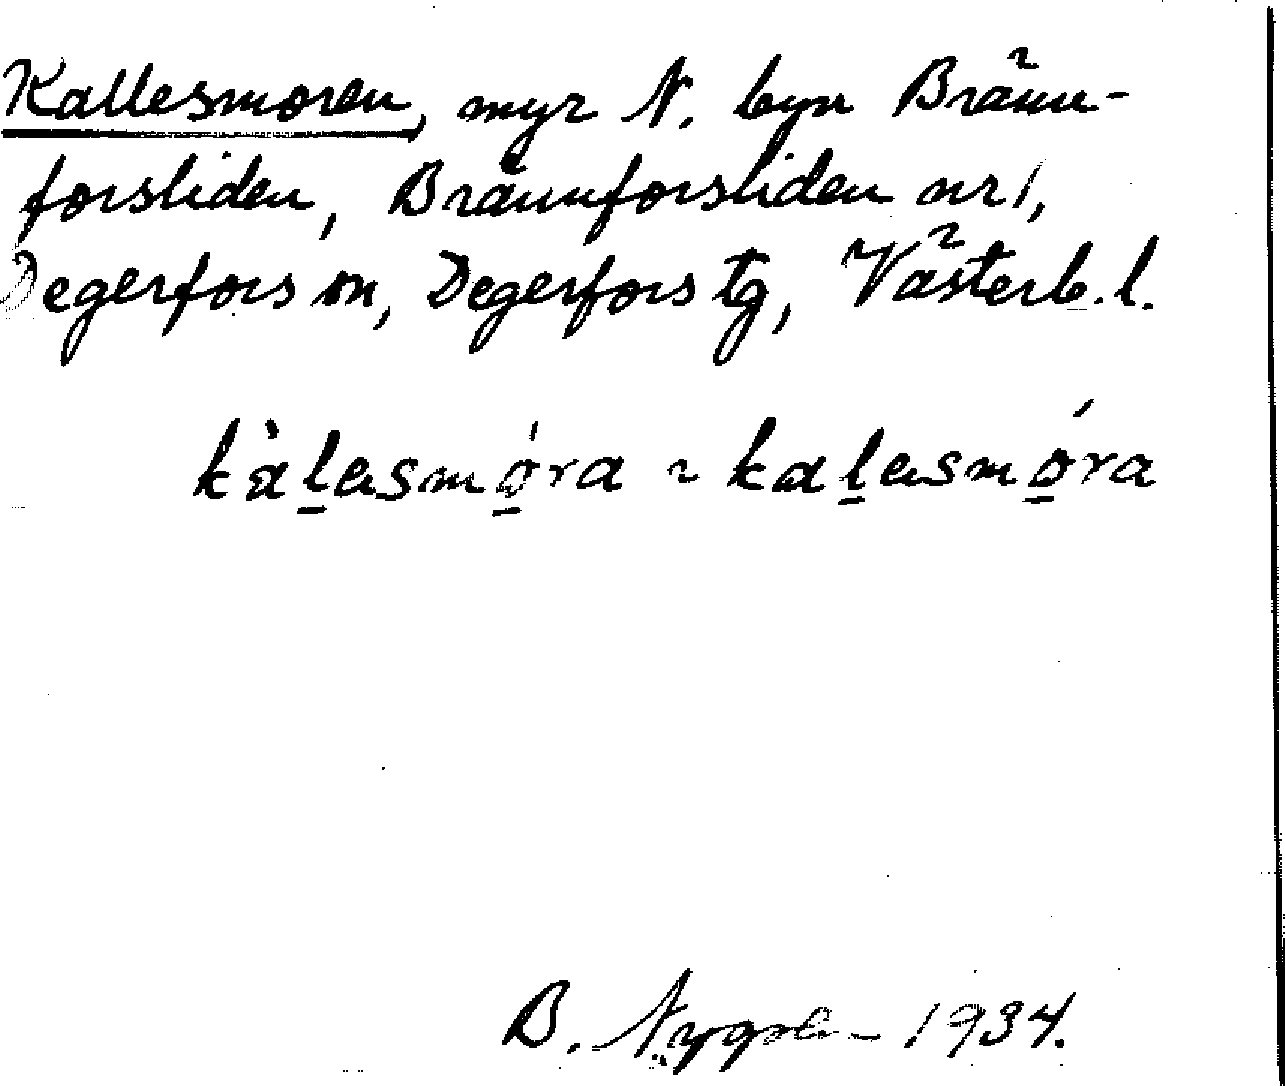 Kallesmoren, myr N. byn Bränn-
forsliden, Brännforsliden nr 1,
Degerfors sn, Degerfors tg, Västerb. l.
kàl̠asmo̠ra ~ kal̠asmó̠ra
B. Nygren 1934.